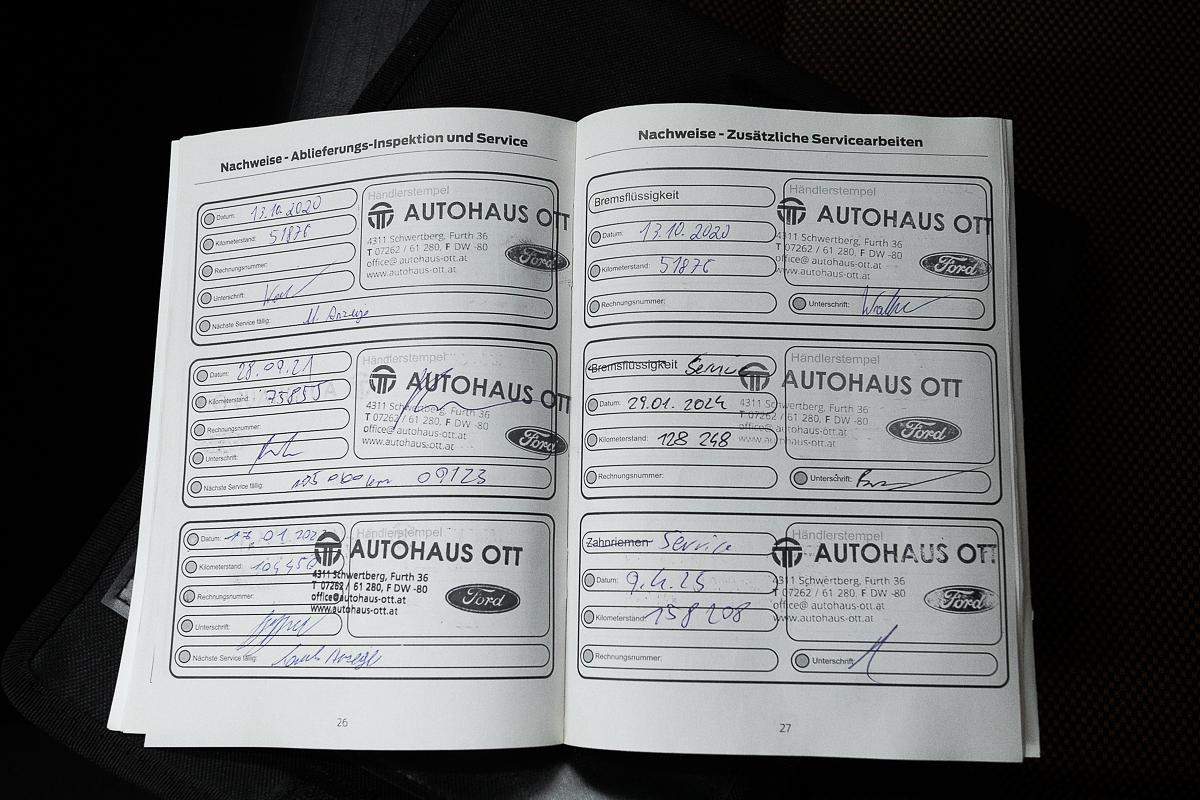 Nachweise - Ablieferungs-Inspektion und Service
Datum: 13.10.2020
Kilometerstand: 51876
Rechnungsnummer:
Unterschrift:
Nächste Service fällig: lt. Anzeige
Händlerstempel
AUTOHAUS OTT
4311 Schwertberg, Furth 36
T 07262 / 61 280, F DW -80
office@autohaus-ott.at
www.autohaus-ott.at
Ford
Datum: 28.09.21
Kilometerstand: 73855
Rechnungsnummer:
Unterschrift:
Nächste Service fällig: 105 000 km 09/23
Händlerstempel
AUTOHAUS OTT
4311 Schwertberg, Furth 36
T 07262 / 61 280, F DW -80
office@autohaus-ott.at
www.autohaus-ott.at
Ford
Datum: 01.202
Kilometerstand: 104450
Rechnungsnummer:
Unterschrift:
Nächste Service fällig: Anzeige
Händlerstempel
AUTOHAUS OTT
4311 Schwertberg, Furth 36
T 07262 / 61 280, F DW -80
office@autohaus-ott.at
www.autohaus-ott.at
Ford
26
Nachweise - Zusätzliche Servicearbeiten
Bremsflüssigkeit
Datum: 13.10.2020
Kilometerstand: 51876
Rechnungsnummer:
Händlerstempel
AUTOHAUS OTT
4311 Schwertberg, Furth 36
T 07262 / 61 280, F DW -80
office@autohaus-ott.at
www.autohaus-ott.at
Ford
Unterschrift:
Bremsflüssigkeit Service
Datum: 29.01.2024
Kilometerstand: 128 248
Rechnungsnummer:
Händlerstempel
AUTOHAUS OTT
4311 Schwertberg, Furth 36
T 07262 / 61 280, F DW -80
office@autohaus-ott.at
www.autohaus-ott.at
Ford
Unterschrift:
Zahnriemen Service
Datum: 9.4.25
Kilometerstand: 158 208
Rechnungsnummer:
Händlerstempel
AUTOHAUS OTT
4311 Schwertberg, Furth 36
T 07262 / 61 280, F DW -80
office@autohaus-ott.at
www.autohaus-ott.at
Ford
Unterschrift:
27